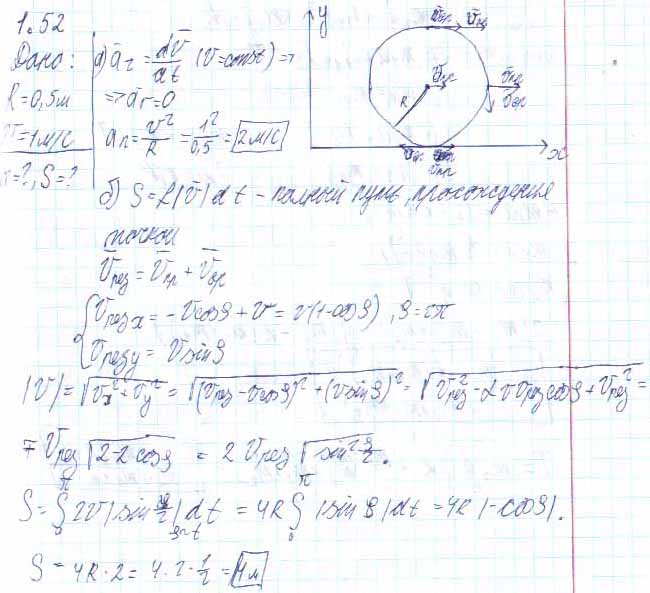 1.52
Дано:
R=0,5м
V=1м/с
=?, S=?
а) a̅τ = dv̅/dt (V=const) ⇒
⇒ aτ=0
an = v²/R = 1²/0,5 = 2м/с
y
x
R
б) S=∫|v̅|dt - полный путь, прохождения
точкой
V̅рез = V̅пр + V̅вр
Vрез x = -Vcosφ + V = v(1-cosφ)
Vрез y = Vsinφ
|V| = √(Vx²+Vy²) = √((Vрез-Vcosφ)²+(Vsinφ)²) = √(Vрез²-2VVрезcosφ+Vрез²) =
= Vрез √(2-2cosφ) = 2 Vрез √(sin²φ/2).
S = ∫ 2V|sin φ/2|dt = 4R ∫ |sin φ|dt = 4R |-cosφ|.
S = 4R·2 = 4·2·1/2 = 4м